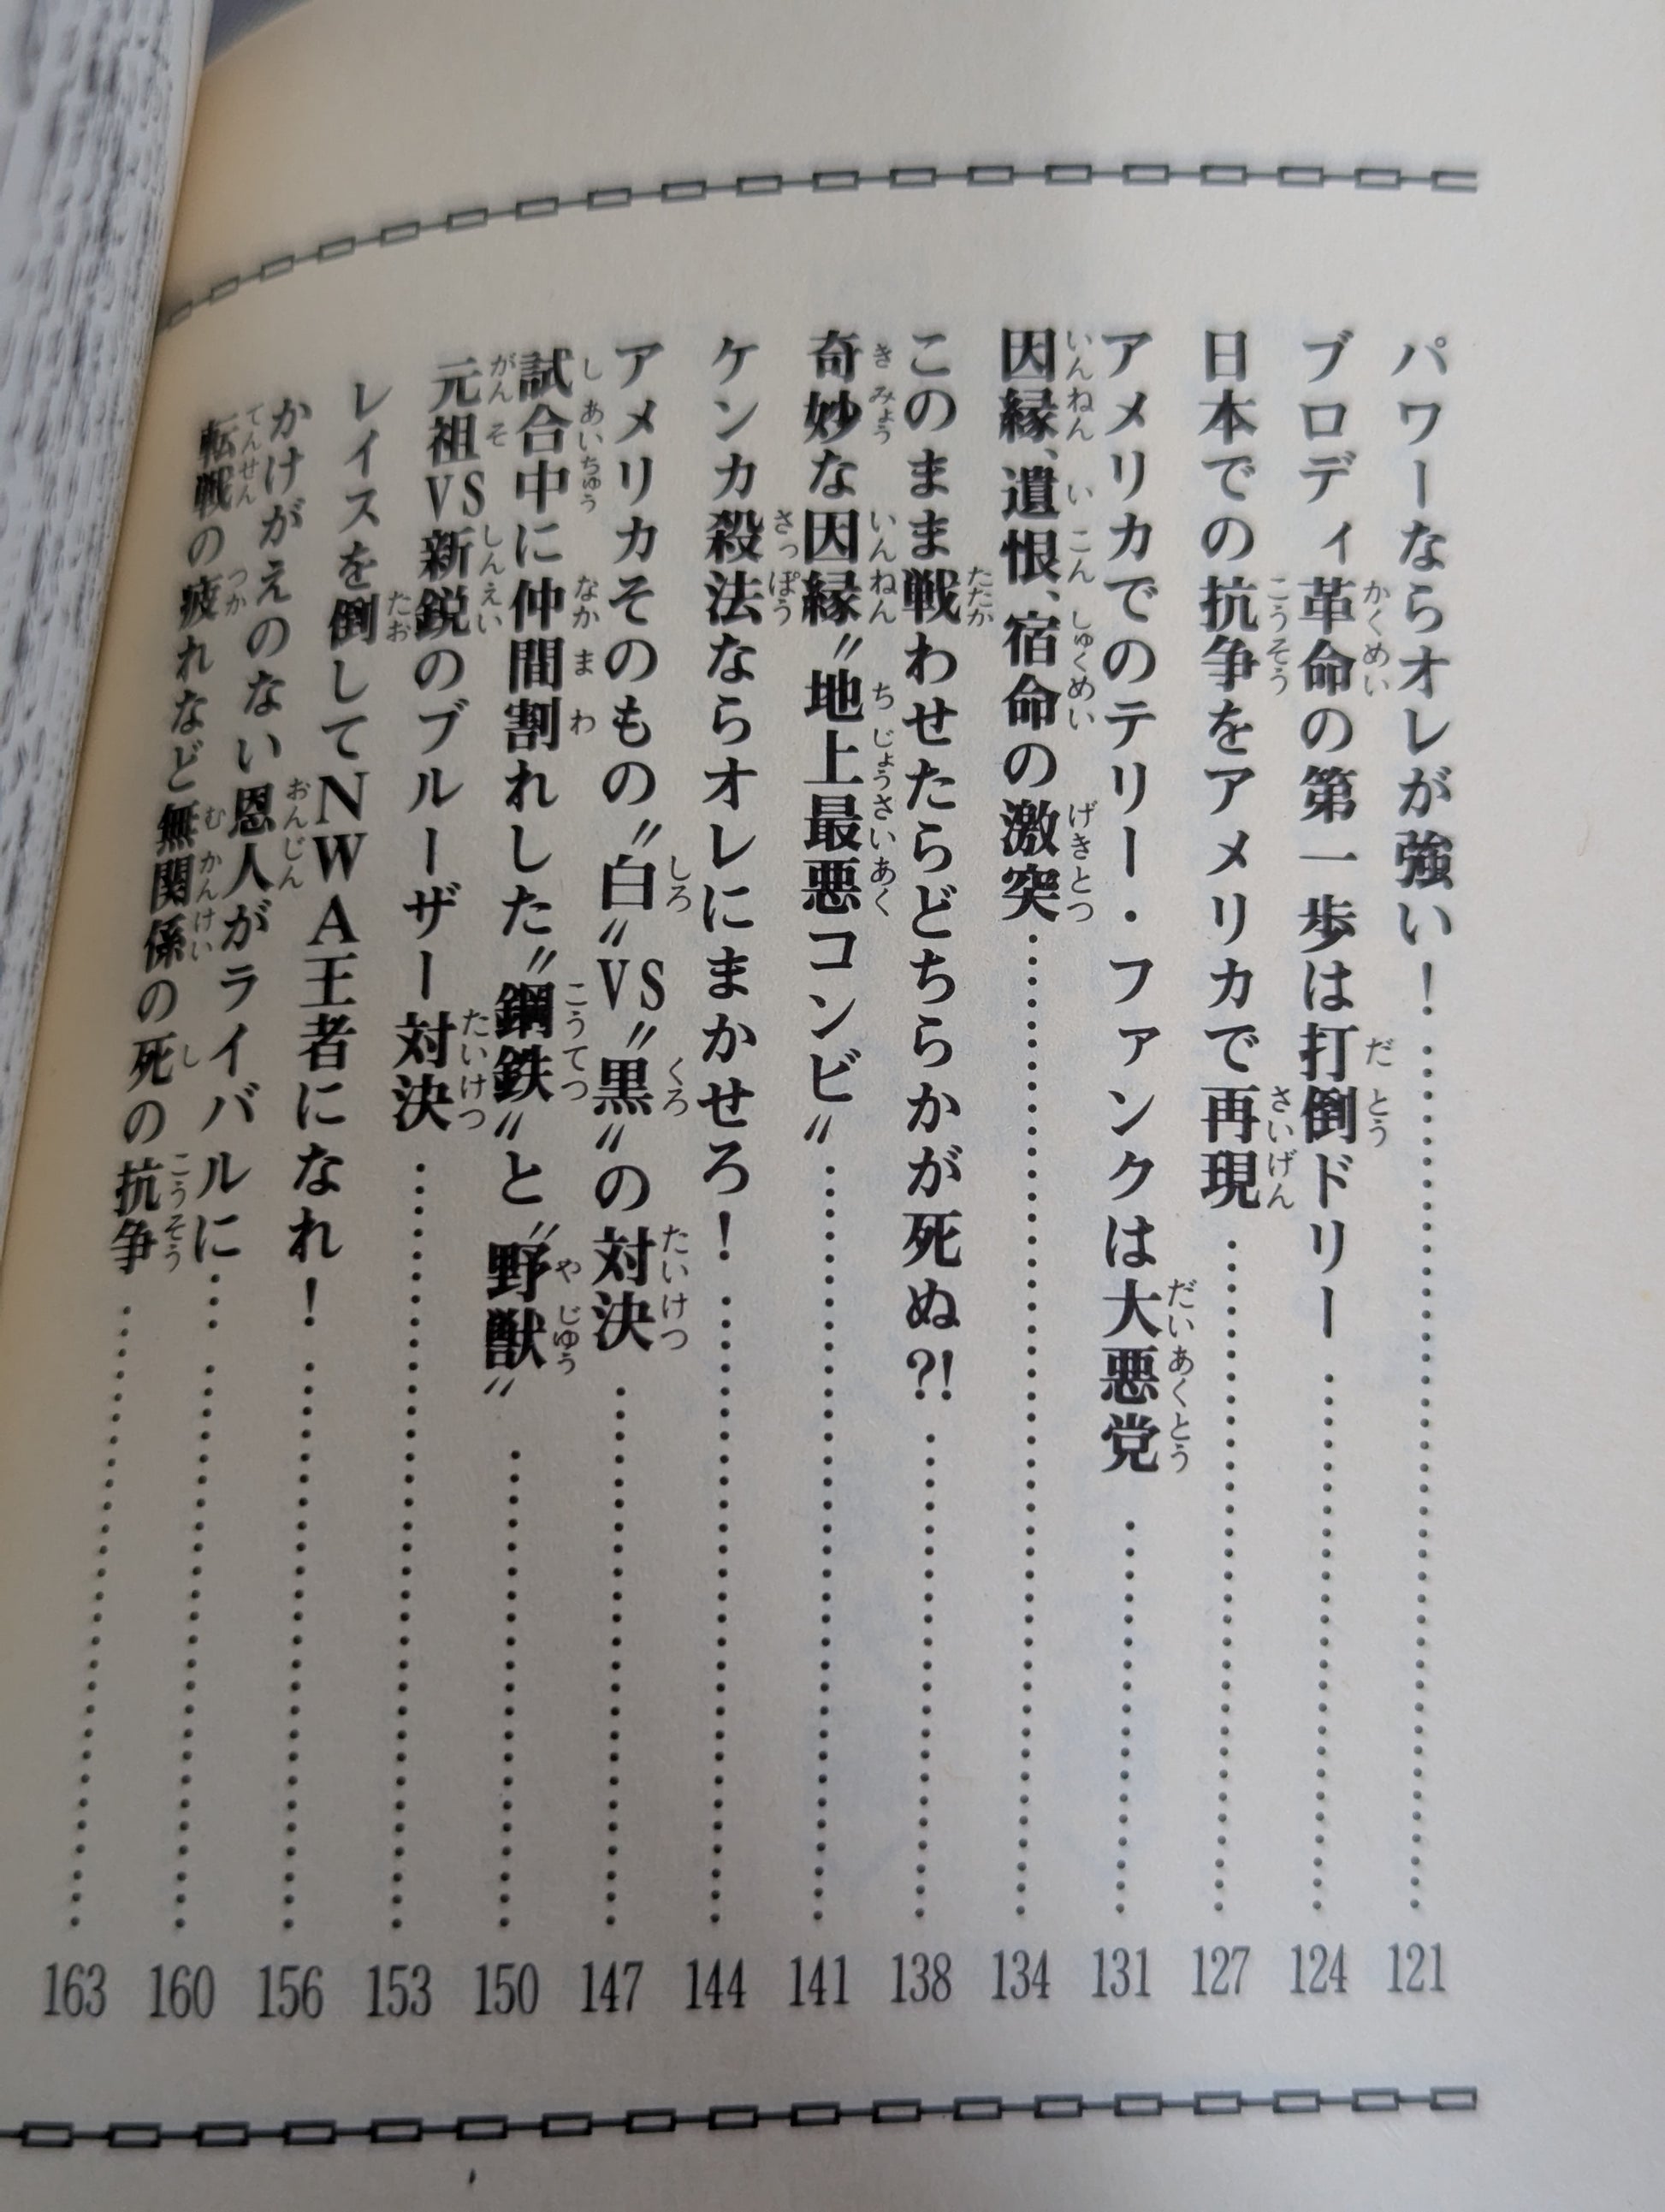 パワーならオレが強い！……………………121
ブロディ革命の第一歩は打倒ドリー……………………124
日本での抗争をアメリカで再現……………………127
アメリカでのテリー・ファンクは大悪党……………………131
因縁、遺恨、宿命の激突……………………134
このまま戦わせたらどちらかが死ぬ?!……………………138
奇妙な因縁〝地上最悪コンビ〟……………………141
ケンカ殺法ならオレにまかせろ！……………………144
アメリカそのもの〝白〟VS〝黒〟の対決……………………147
試合中に仲間割れした〝鋼鉄〟と〝野獣〟……………………150
元祖VS新鋭のブルーザー対決……………………153
レイスを倒してNWA王者になれ！……………………156
かけがえのない恩人がライバルに………………………160
転戦の疲れなど無関係の死の抗争……………………163